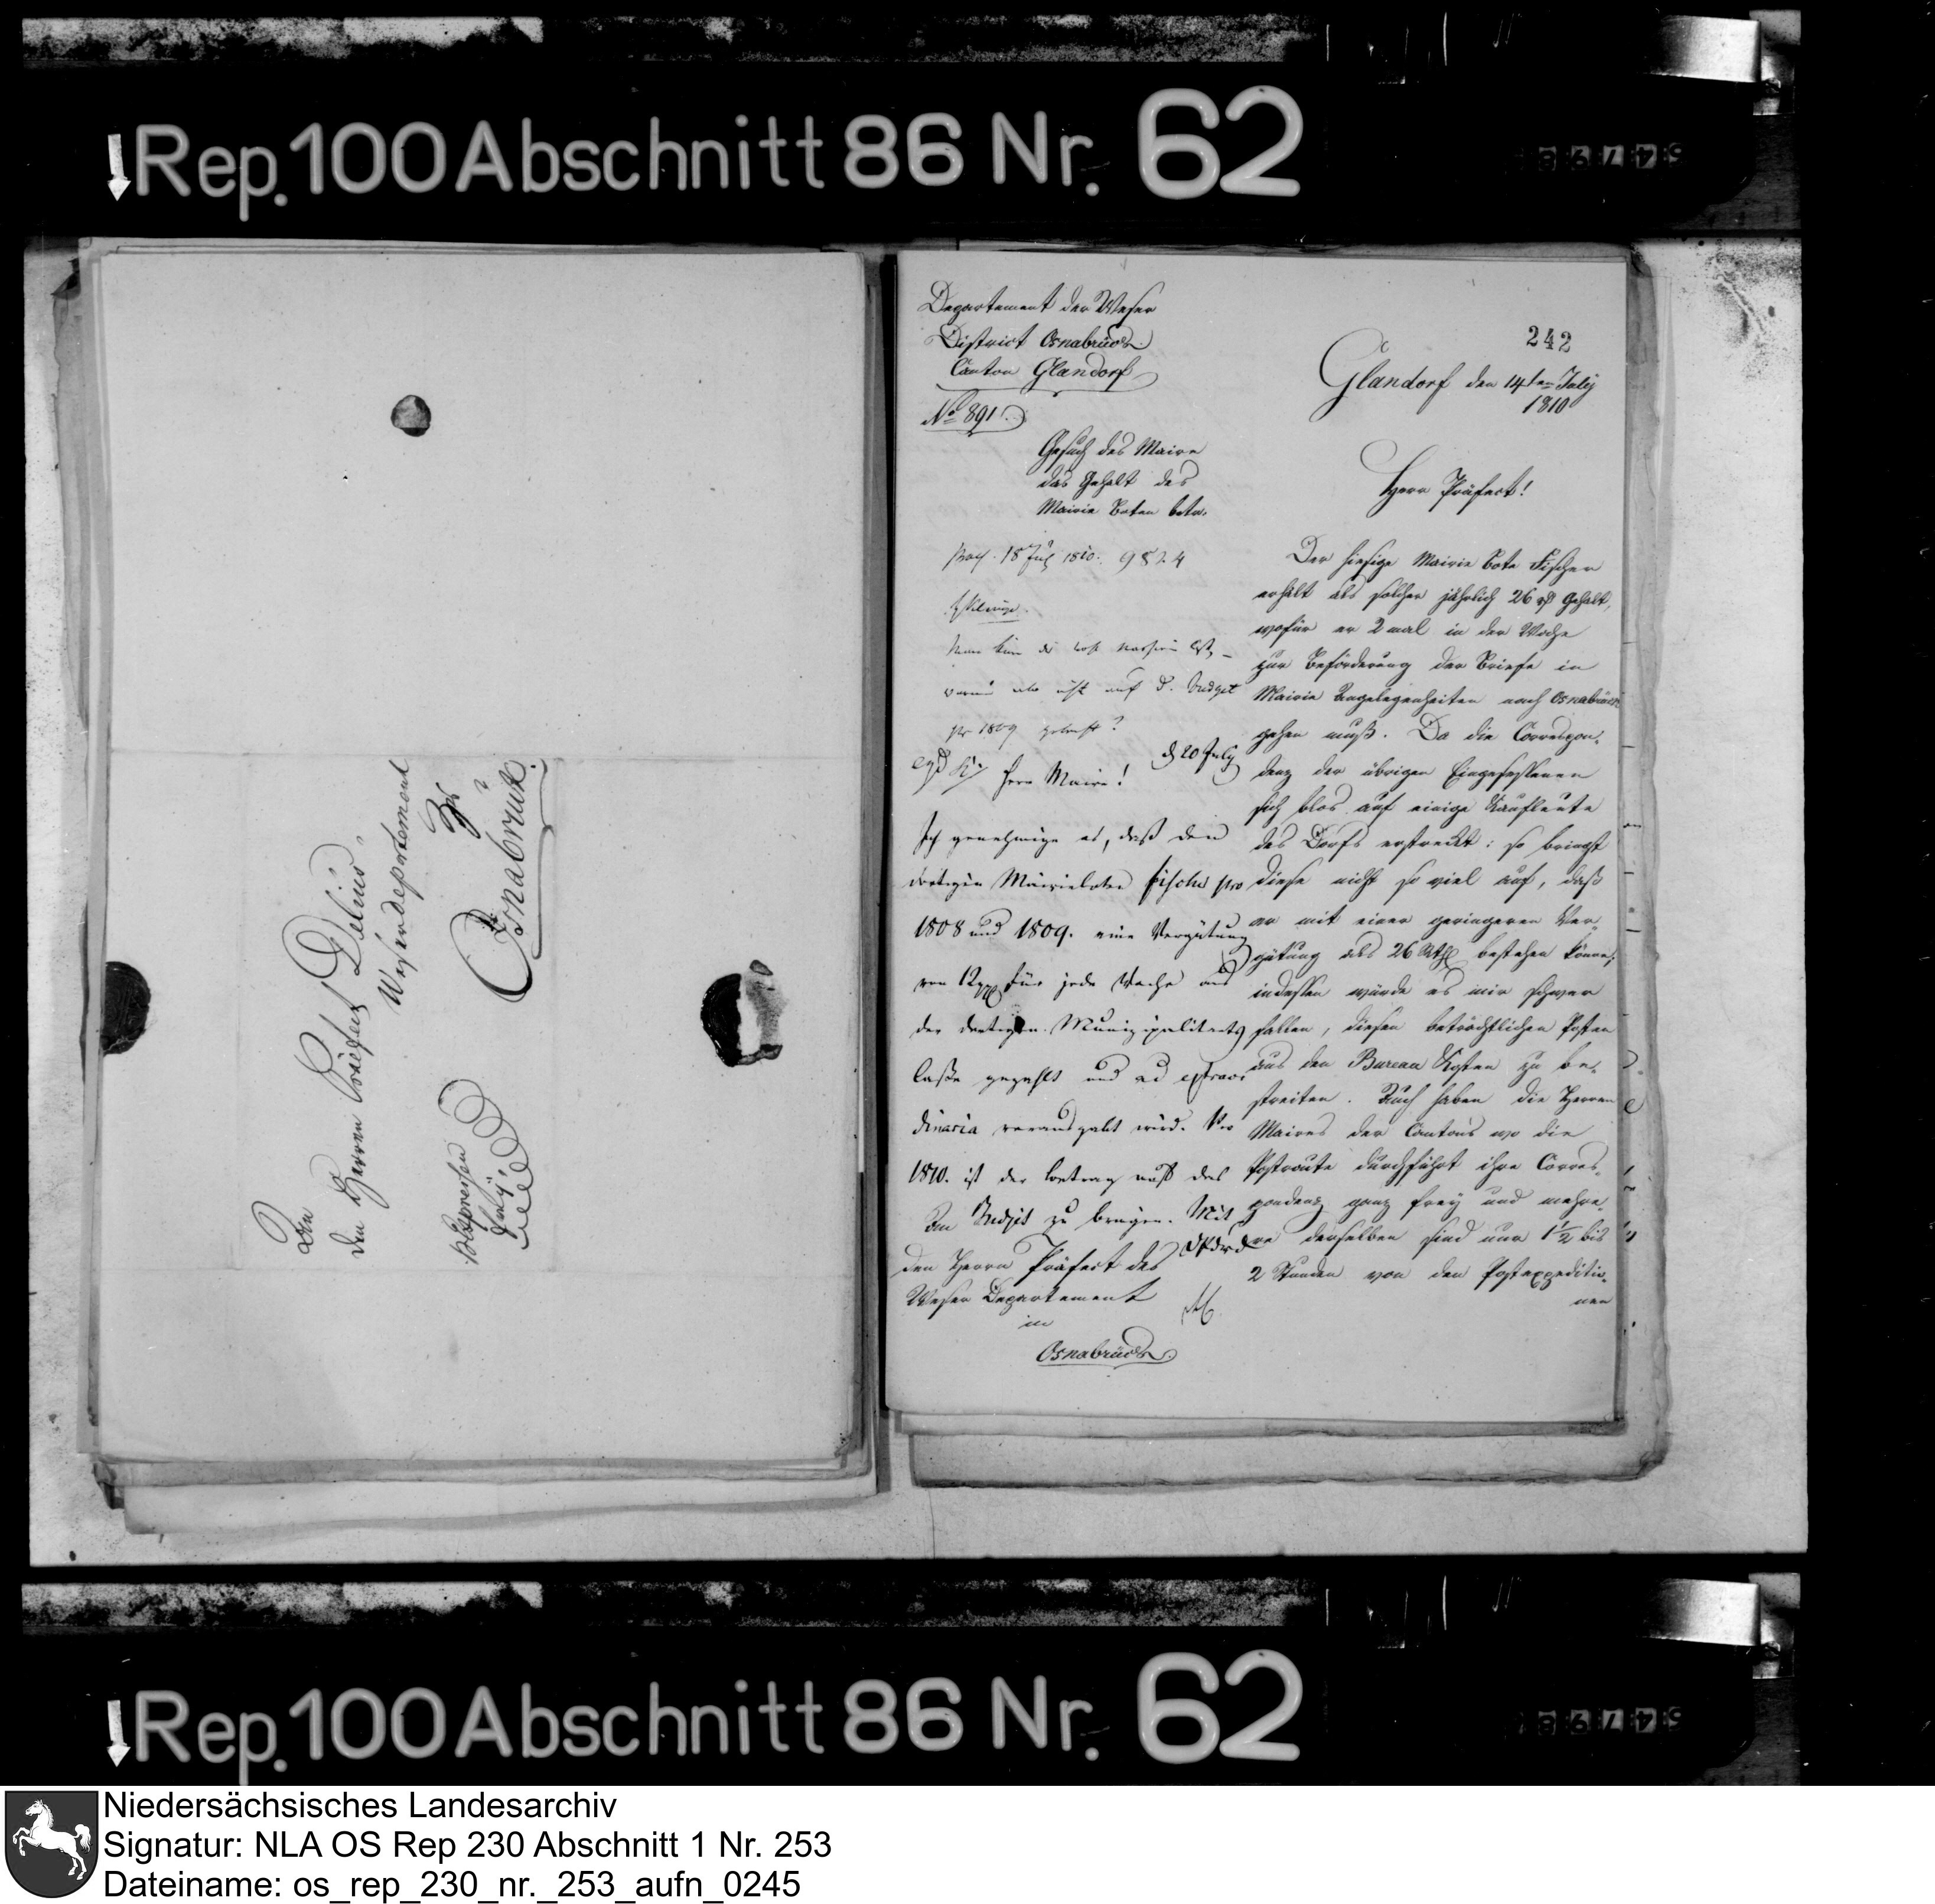 Rep. 100 Abschnitt 86 Nr. 62
An
den Herren Präfect Delius
Weserdepartement
Zu
Osnabrück.
per Expressen
frey
242
Departement der Weser
District Osnabrück
Canton Glandorf
No 891.
Glandorf den 14ten July
1810
Gesuch des Maire
das Gehalt des
Mairie Boten betr.
Herr Präfect!
Der hiesige Mairie Bote Fischer
erhält als solcher jährlich 26 rt Gehalt,
wofür er 2 mal in der Woche
zur Beförderung der Briefe in
Mairie Angelegenheiten nach Osnabrück
gehen muß. Da die Correspon-
denz der übrigen Eingesessenen
sich blos auf einige Kaufleute
des Dorfs erstreckt: so bringt
diese nicht so viel auf, daß
er mit einer geringeren Ver-
gütung als 26 Rthl bestehen könne;
indessen würde es mir schwer
fallen, diesen beträchtlichen Posten
aus den Bureau Kosten zu be-
streiten. Auch haben die Herren
Maires der Cantons wo die
Postroute durchführt ihre Corres-
pondenz ganz frey und mehre-
re derselben sind nur 1 1/2 bis
2 Stunden von den Postexpeditio-
nen
18 July 1810. 9824
auf d. Budget
pr 1809 gebracht?
d 20 July
Herr Maire!
Ich genehmige es, daß dem
dortigen Mairieboten Fischer pro
1808 und 1809. eine Vergütung
von 12 für jede Woche aus
der dortigen Munizipalitaets
Casse gezahlt und ad extraor
dinaria verausgabt wird. Pro
1810. ist der Betrag auf das
Budjet zu bringen. Mit
den Herrn Präfect des
Weser Departement
in
Osnabrück.
Rep. 100 Abschnitt 86 Nr. 62
Niedersächsisches Landesarchiv
Signatur: NLA OS Rep 230 Abschnitt 1 Nr. 253
Dateiname: os_rep_230_nr._253_aufn_0245